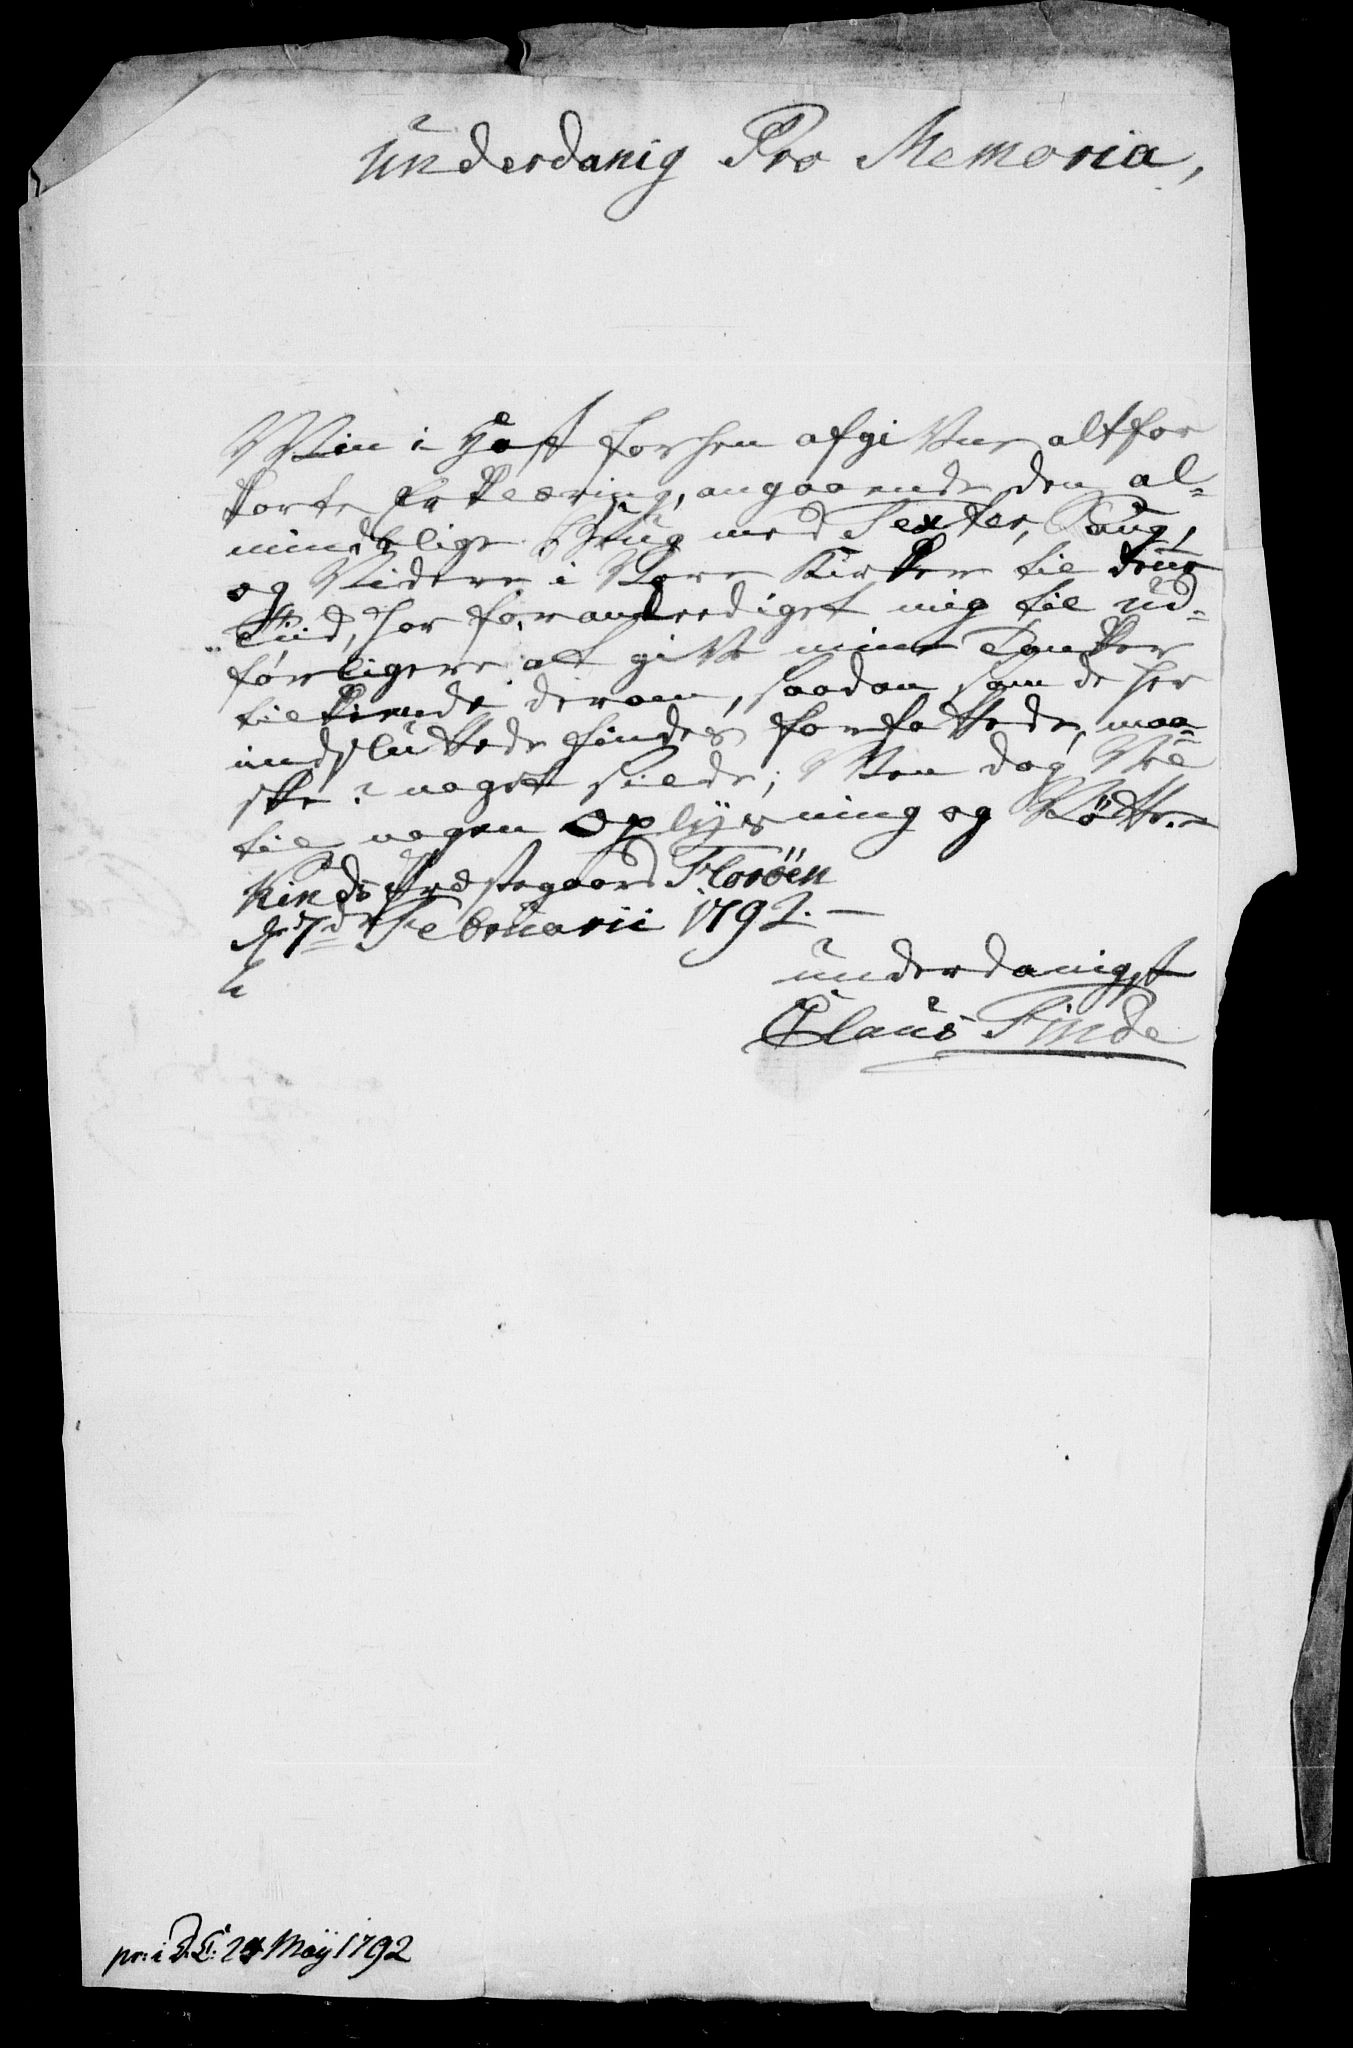 underdanig Pro Memoria,
Min i Hast forhen afgivne altfor
korte Erklæring, angaaende den al-
mindelige Brug med Texter, Sang,
og Videre i Vore Kirker til denne
Tiid, har foranlediget mig til ud-
førligere at give mine Tanker
tilkiende derom, saadan som de her
indsluttede findes forfattede, maa-
skee noget silde; Men dog Vel
til nogen Oplysning og
Kinds Præstegaard Florøen
d. 7de Februarii 1792. —
underdanigst
Claus Finde
pr: i D. C: 24 Maÿ 1792